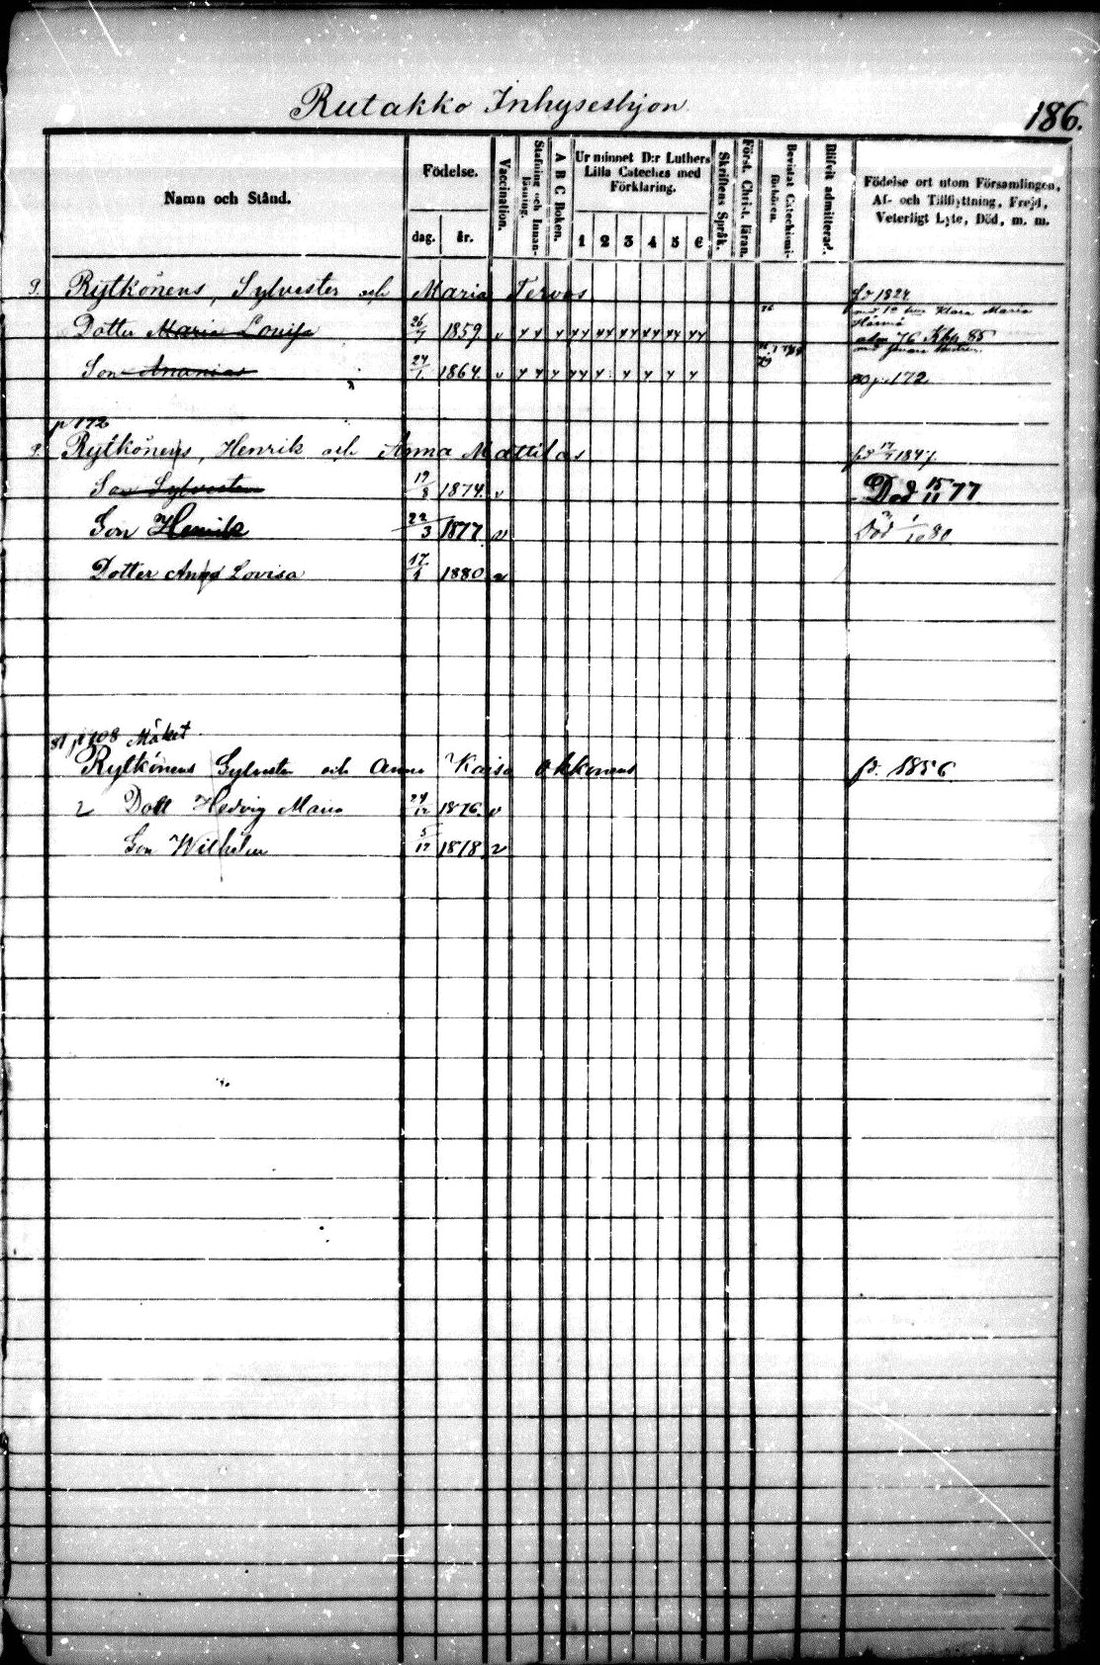 Rutakko Inhyseshjon
186.
Namn och Stånd.
Födelse.
dag.
år.
Vaccination.
Stafning och Innan-
läsning.
A B C Boken.
Ur minnet D:r Luthers
Lilla Cateches med
Förklaring.
1 2 3 4 5 6
Skriftens Språk.
Först. Christ. läran.
Bevistat Catechismi-
förhören.
Blifvit admitterad.
Födelse ort utom Församlingen,
Af- och Tillflyttning, Frejd,
Veterligt Lyte, Död, m. m.
Rytkönens, Sylvester och Maria Tervos
1824
Dotter Maria Lovisa 26/7 1859 v
Klara Maria
adm 76 85
Son Ananias 24/1 1864 v
p 172
p 172
Rytkönens, Henrik och Anna Mattilas
17/7 1847
Son Sylvester 19/8 1874 v Död 15/11 77
Son Henrik 22/3 1877 v Död 80
Dotter Anna Lovisa 17/1 1880 v
p 108
Rytkönens Sylvester och Anna Kaisa Okkonens
p. 1856
2 Dott Hedvig Maria 24/12 1876 v
Son Wilhelm 5/12 1878 v